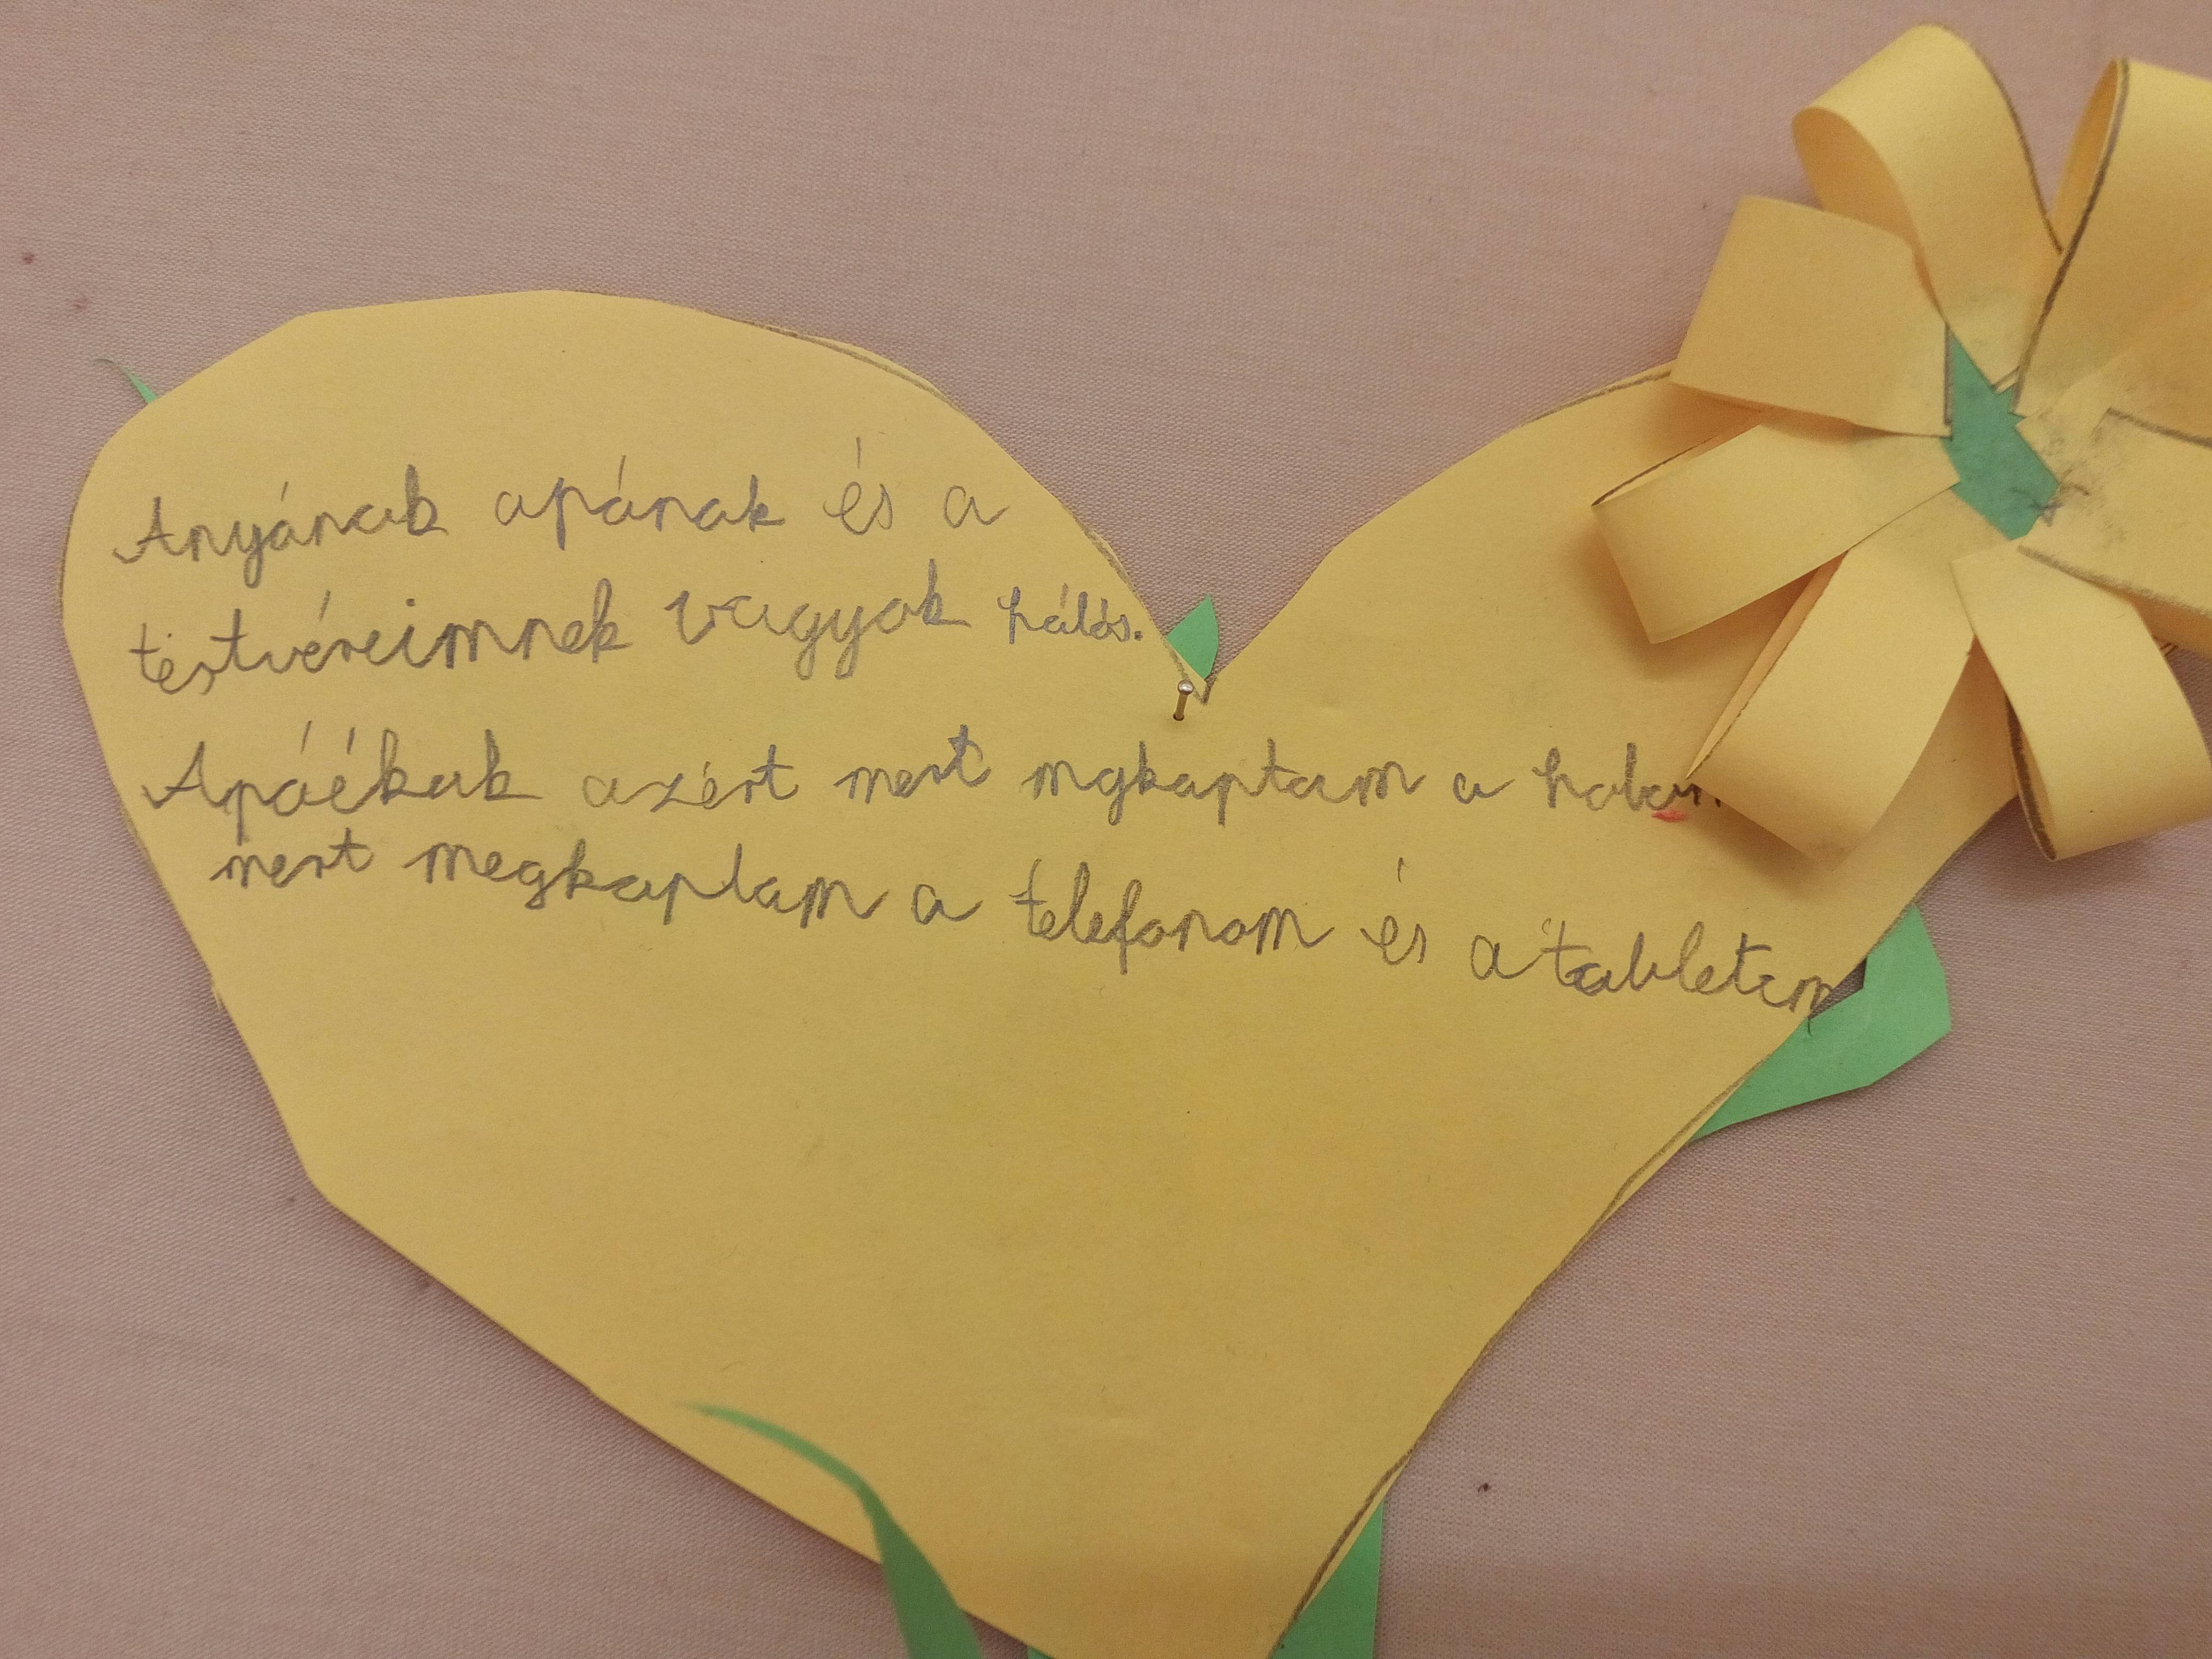 Anyának apának és a
testvéreimnek vagyok hálás.
Apáékak azért mert mgkaptam a
mert megkaptam a telefonom és a tabletem